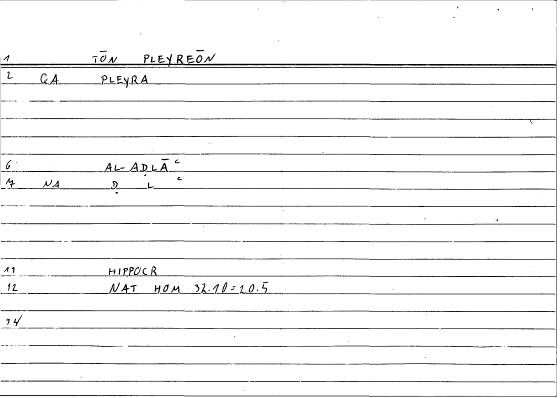 1 TŌN PLEYREŌN
2 GA PLEYRA
6 AL-AḌLĀʿ
7 NA Ḍ L ʿ
11 HIPPOCR
12 NAT HOM 32.10=20.5
14